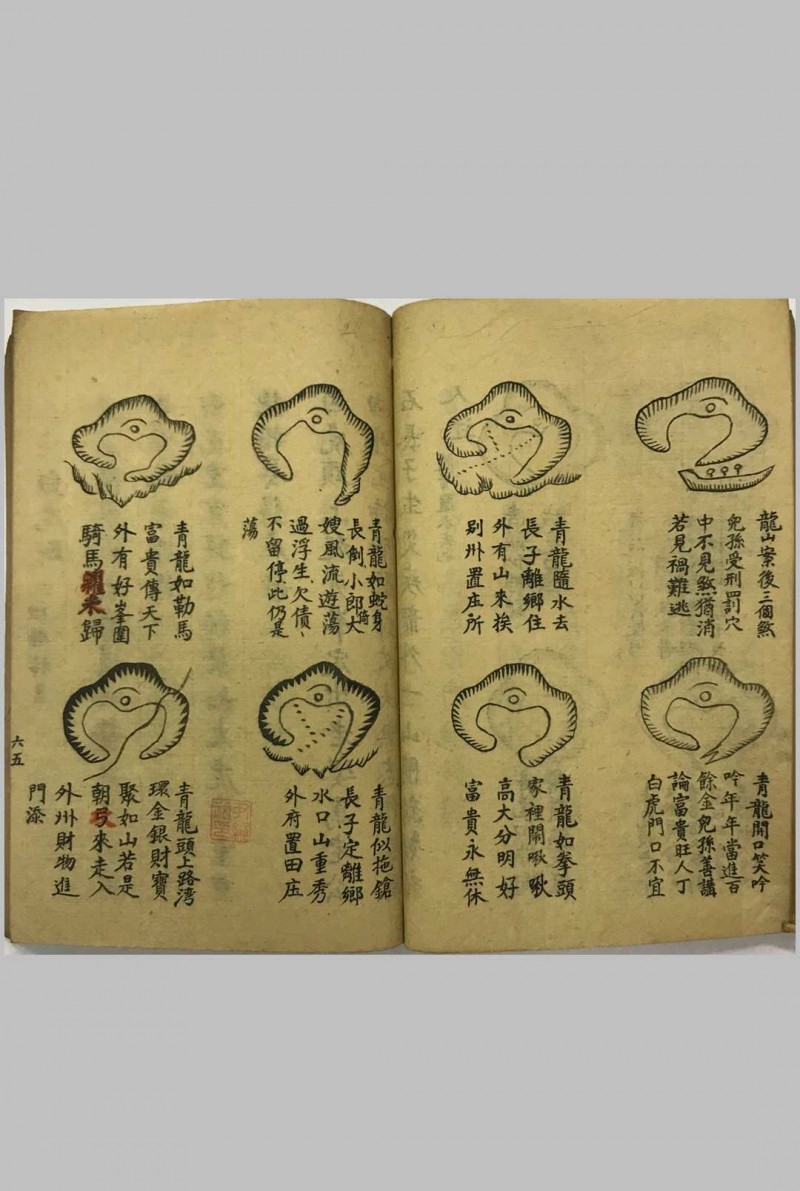 龍山案後三個煞
兒孫受刑罰穴
中不見煞猶消
若見禍難逃
青龍隨水去
長子離鄉住
外有山來挨
別州置庄所
青龍開口笑吟
吟年年當進百
餘金兒孫善講
論富貴旺人丁
白虎門口不宜
青龍如拳頭
家裡鬧啾啾
高大分明好
富貴永無休
青龍如蛇身
長倒小郎偷大
嫂風流遊蕩
過浮生欠債
不留停此仍是
蕩
青龍如勒馬
富貴傳天下
外有好峯圍
騎馬歸
青龍似拖鎗
長子定離鄉
水口山重秀
外府置田庄
青龍頭上路湾
環金銀財寶
聚如山若是
朝來走入
外州財物進
門添
六五